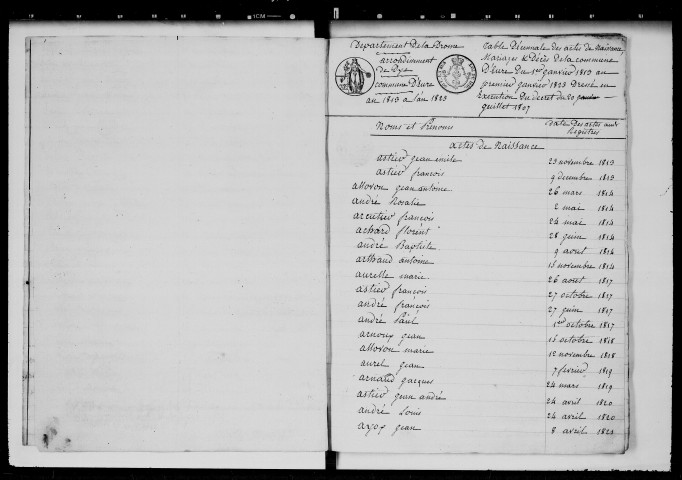 Departement De la Drome
arrondissement
de Dye
commune D'eure
an 1813 a l'an 1823
Table Décennale des actes de Naissance
Mariages & Décès de la commune
D'eure Du 1er janvier 1813 au
premier janvier 1823 Dressé en
Execution du decret du 20
juillet 1807
Noms et Prénoms
Date Des actes aux
Registres
actes de Naissance
astier jean emile 23 novembre 1813
astier françois 9 decembre 1813
allovon jean antoine 26 mars 1814
andré Rosalie 2 mai 1814
arcutier françois 24 mai 1814
achard florent 28 juin 1814
andré Baptiste 9 avril 1814
arthaud antoine 15 novembre 1814
aurelle marie 26 aout 1817
astier françois 27 octobre 1817
andré françois 27 juin 1817
andré Paul 1er octobre 1817
arnoux jean 15 octobre 1818
allovon marie 12 novembre 1818
aurel jean 7 fevrier 1819
arnaud jacques 24 mars 1819
astier jean andré 24 avril 1820
andré Louis 24 avril 1820
ayox jean 8 avril 1821